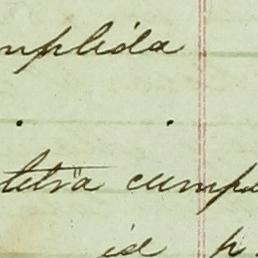 mplida
. .
letra cump
id p